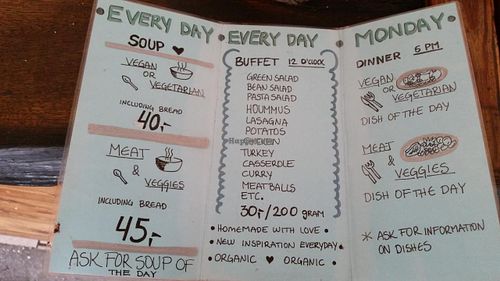 EVERY DAY
SOUP ♥
VEGAN
OR
VEGETARIAN
INCLUDING BREAD
40,-
MEAT
&
VEGGIES
INCLUDING BREAD
45,-
ASK FOR SOUP OF
THE DAY
EVERY DAY
BUFFET 12 O'CLOCK
GREEN SALAD
BEAN SALAD
PASTA SALAD
HOUMMUS
LASAGNA
POTATOS
TURKEY
CASSERDLE
CURRY
MEATBALLS
ETC.
30,-/200 GRAM
• HOMEMADE WITH LOVE •
• NEW INSPIRATION EVERYDAY •
• ORGANIC ♥ ORGANIC •
MONDAY
DINNER 5 PM.
VEGAN
OR
VEGETARIAN
DISH OF THE DAY
MEAT
&
VEGGIES
DISH OF THE DAY
* ASK FOR INFORMATION
ON DISHES